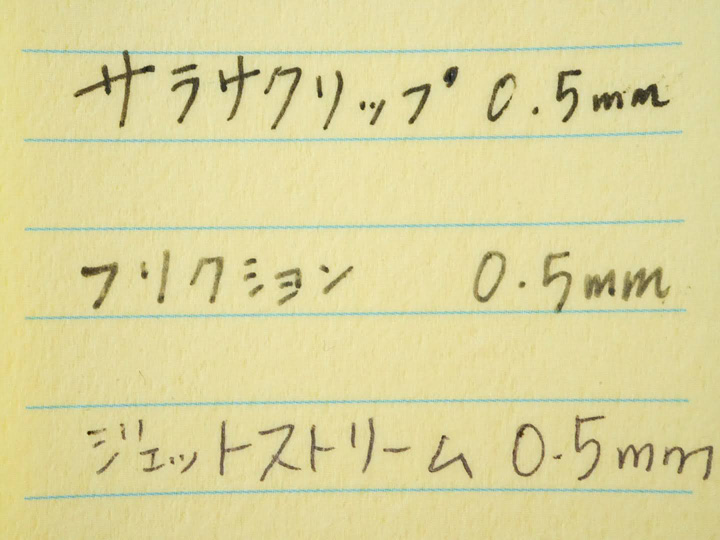 サラサクリップ 0.5mm
フリクション 0.5mm
ジェットストリーム 0.5mm